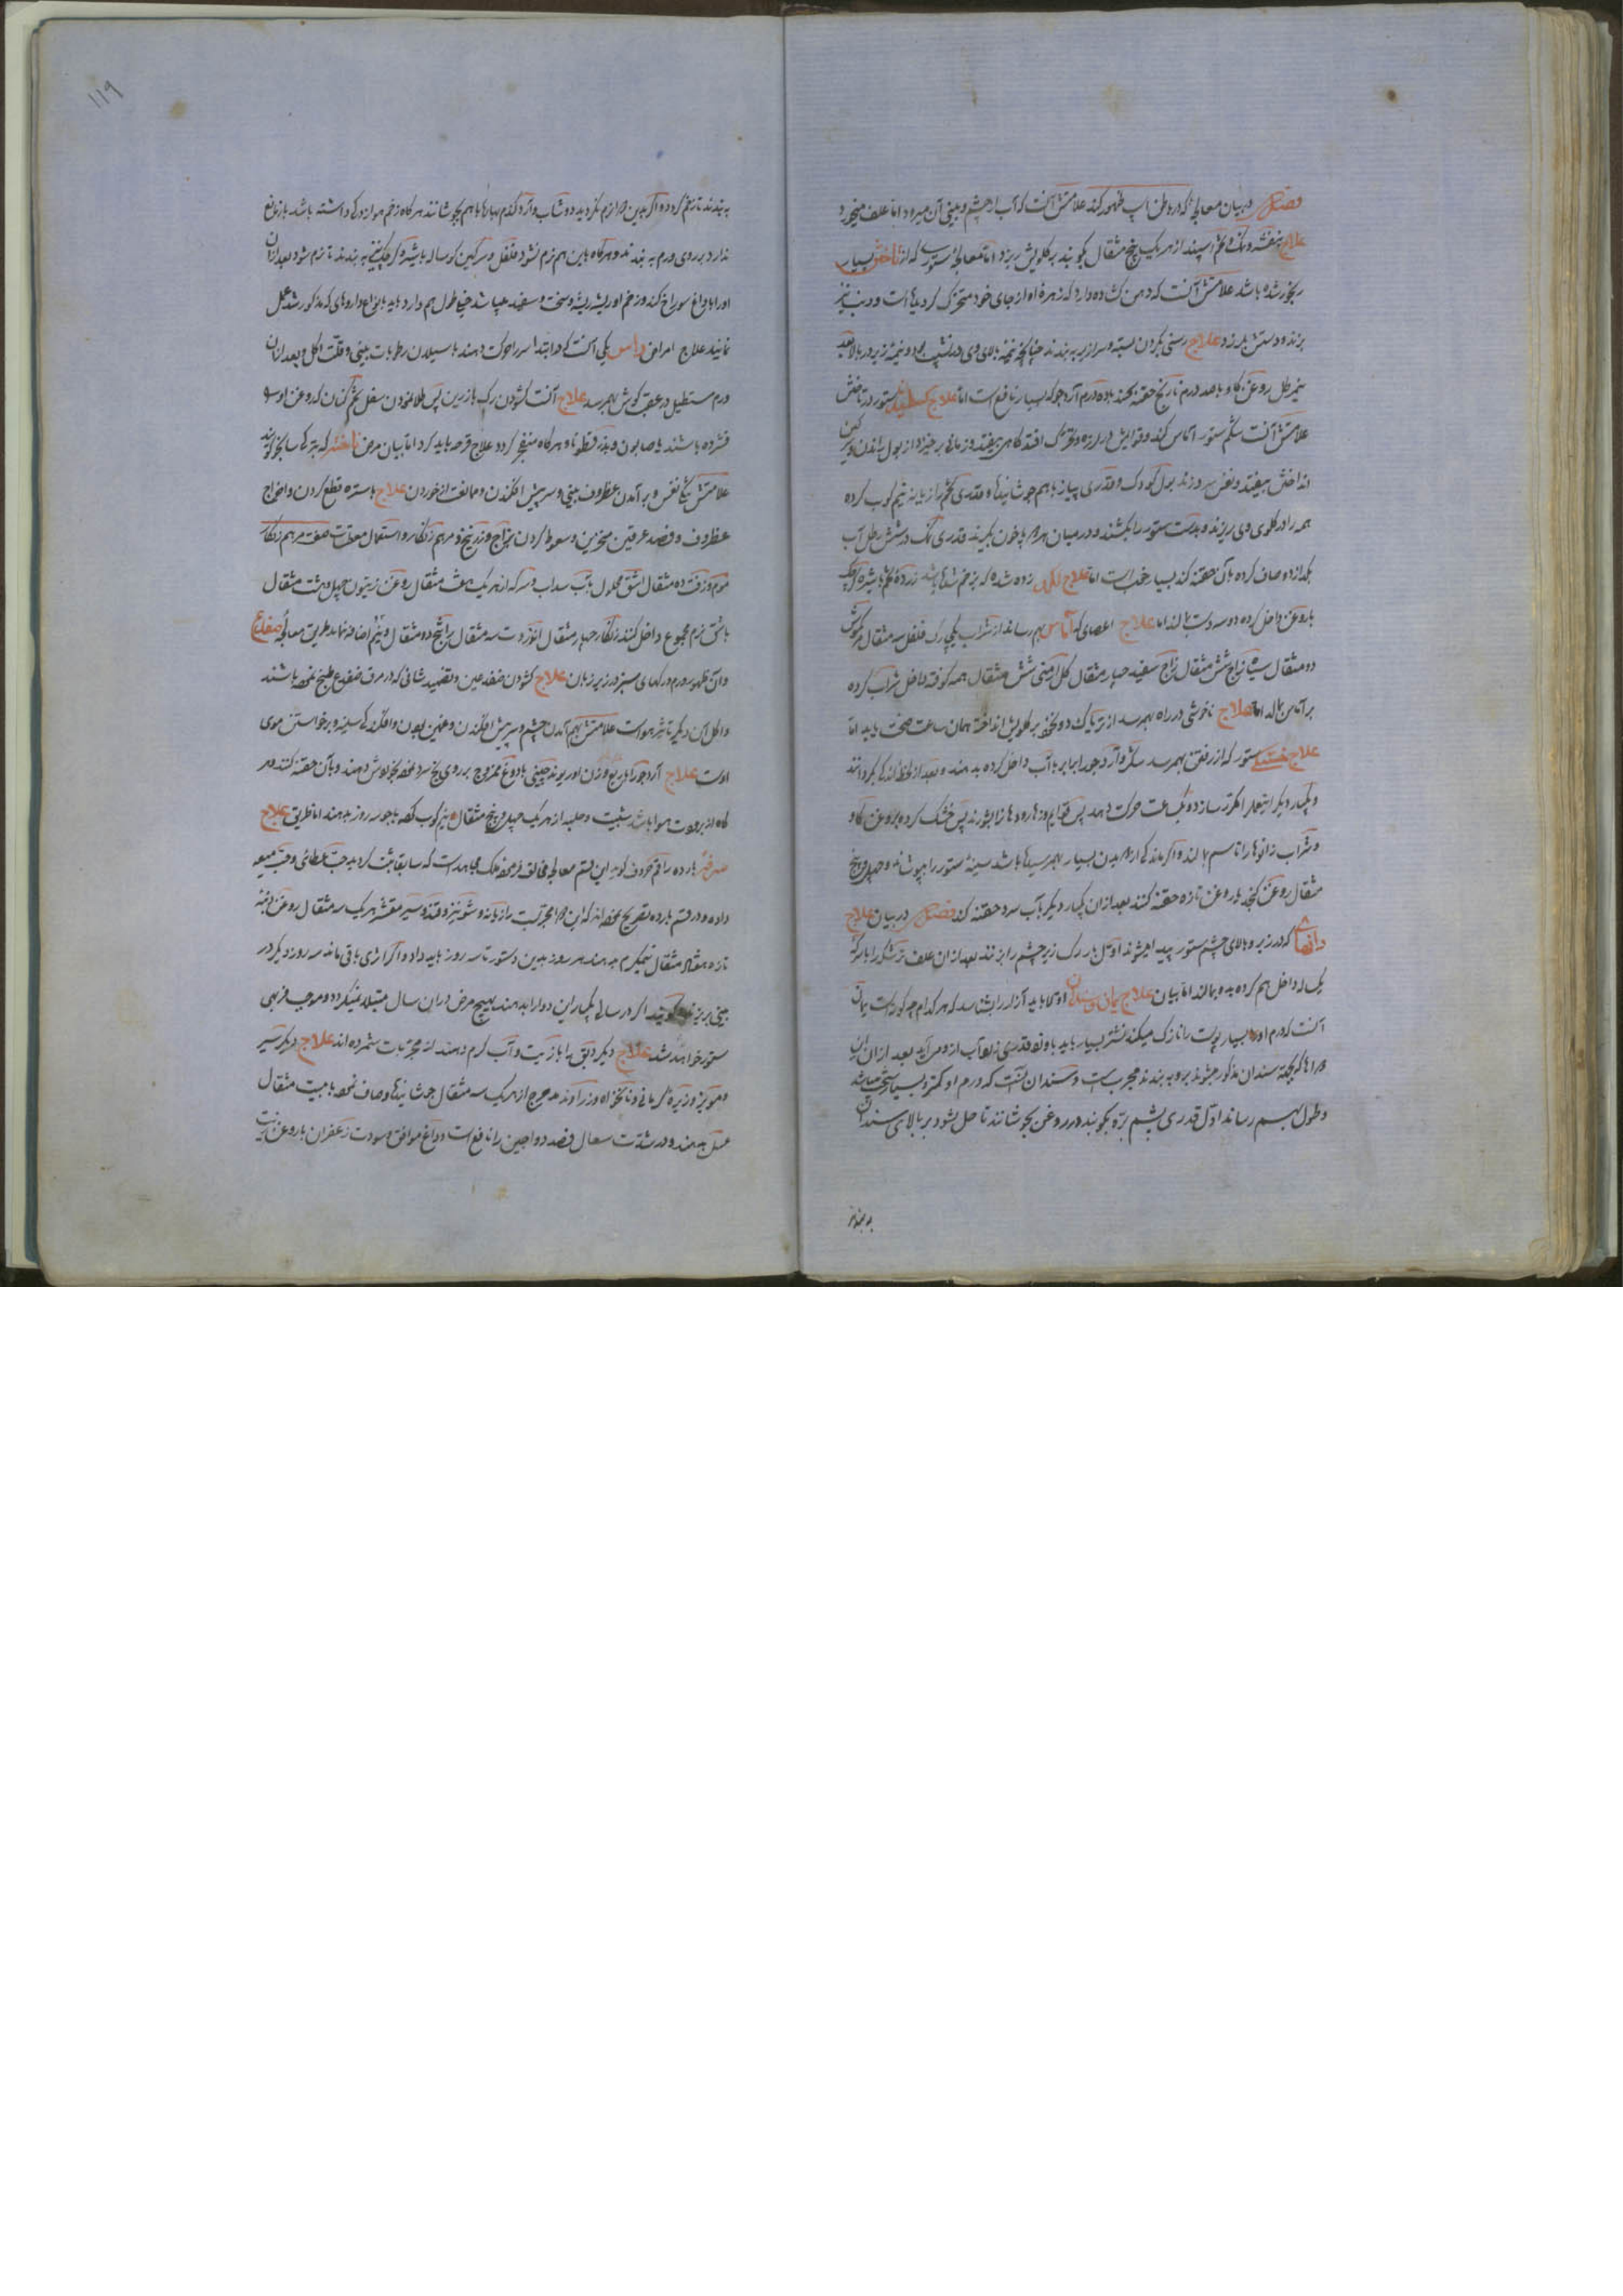 فصل در بیان معالجه که در باطن اسب ظهور کند علامتش آنست که آب از چشم و بینی آن میرود اما علف میخورد
علاج بنفشه و نمک و تخم اسپند از هر یک پنج مثقال بکوبند بر کلویش ریزد اما معالجه ستوری که از تاختن بسیار
رنجور شده باشد علامتش آنست که دهن کشاده دارد که زهرهٔ او از جای خود متحرک کردیده است و دنب نیز
بزند و دستش بلرزد علاج رسنی بکردن بسته و سرازیر به بندند چنانچه نیمه بالای وی در نشیب بود و نیمه زیر در بالا بعد
نیم رطل روغن کاو با صد درم نارنج حقنه بکنند با ده درم آرد جو که بسیار نافع است اما علاج ستور در تاختن
علامتش آنست شکم ستور آماس کند و قوایش در لرزه و تحرک افتد کاهی بیفتد و زمانی برخیزد از بول راندن و سرکین
انداختن بیفتد و نفس سرد زند بول کودک و قدری پیاز با هم جوشانیده و قدری تخم رازیانه نیم کوب کرده
همه را در کلوی وی بریزند و بدست ستور را بکشند و در میان هر دو پا خون بکیرند قدری نمک در شش رطل آب
بکدازد و صاف کرده بآن حقنه کند بسیار خوب است اما علاج لکد زده شده که زخم شده باشد زردهٔ تخم با شیره
با روغن داخل کرده دو سه دست بمالند اما علاج اعضای که آماس بهم رساند از شراب یکی رک فلفل سه مثقال
دو مثقال سیاه زاج شش مثقال زاج سفید چهار مثقال کل ارمنی شش مثقال همه کوفته داخل شراب کرده
بر آماس بمالد اما علاج ناخوشی در راه بهم رسد از تریاک دو نخود بر کلویش انداخته همان ساعت صحت یابد اما
علاج خستگی ستور که از رفتن بهم رسد شکر و آرد جو را برابر با آب داخل کرده بدهند و بعد از لحظه اندکی بکردانند
و یکبار دیکر این عمل را مکرر سازد و یکساعت حرکت دهد پس قوایم او زهاره رودها را بشورند پس خشک کرده بروغن کاو
و شراب زانوها را تا سم بمالند و اکر ماندکی از دویدن بسیار بهم رسیده باشد سینهٔ ستور را بپوشانند و چهل و پنج
مثقال روغن کنجد با روغن تازه حقنه کنند بعد از آن یکبار دیکر با آب سرد حقنه کند فصل در بیان علاج
دانهای که در زیر و بالای چشم ستور پیدا میشود اول بار رک زیر چشم را بزنند بعد از آن علف ترشک را با سرکه
یکساله داخل هم کرده بدو بمالند اما بیان علاج یمان و سندان اولا باید آزار را بشناسد که هر کدام چکونه است یمان
آنست که ورم او بسیار پوست را نازک میکند نشتر بسیار باید باو زد قدری زرد آب از او می‌آید بعد از آن این
دواها که بجهة سندان مذکور میشود برو به بندند مجرب است و سندان آنست که ورم او کمتر و بسیار سخت میباشد
و طول بهم رساند اول قدری پشم بزه بکوبند در روغن بجوشانند تا حل شود بر بالای سندان
به بندند
۱۱۹
به بندند تا زخم کردد و اکر بدین دوا نرم نکردید دوشاب و آرد کندم بهارها با هم بجوشانند هرکاه زخم هموار اندکی داشته باشد باز مانع
ندارد بر روی ورم به بندند و هرکاه باین هم نرم نشود فلفل و سرکین کوساله با شیره به بندند تا نرم شود بعد از آن
او را با داغ سوراخ کند و زخم او ریشه ریشه و سخت و سفید میباشد طول هم دارد باید بانواع داروهای که مذکور شد عمل
نمایند علاج امراض راس یکی آنست که در ابتدا سر را حرکت دهند با سیلان رطوبات بینی و قلت اکل و بعد از آن
ورم مستطیل در عقب کوش بهم رسد علاج آنست کشودن رک بازرین پس طلا نمودن سفل تخم کتان که روغن او
فشرده باشند با صابون و بذر قطونا و هرکاه منفجر کردد علاج قرحه باید کرد اما بیان مرض ناخنه که بترکی سانجو کویند
علامتش تنکی نفس و برآمدن غظروف بینی و سر پیش افکندن و ممانعت از خوردن علاج باستره قطع کردن و اخراج
غظروف و فصد عرقین منخرین و سعوط کردن بزاج و زرنیخ و مرهم زنکار و استعمال معطسات صفت مرهم زنکار
موم و زفت ده مثقال اشق محلول بآب سداب و سرکه از هر یک هشت مثقال روغن زیتون چهل و هشت مثقال
باتش نرم مجموع داخل کنند زنکار چهار مثقال انزروت سه مثقال راتیانج دو مثقال و نیم اضافه نماید طریق معالجهٔ ضفدع
و آن ظهور ورم و رکهای سبز در زیر زبان علاج کشودن ضفدعین و تضمید شانی که در مرق ضفدع طبخ نموده باشند
و اکل آن دیکر تاثیر هواست علامتش بهم آمدن چشم و سر پیش افکندن و غمین بودن و افکندکی سینه و برخواستن موی
اوست علاج آرد جو را با ربع وزن او ریوند چینی با دوغ ممزوج بر روی یخ سرد نموده بخورش دهند و بآن حقنه کنند و هر
کاه از برودت هوا باشد شبت و حلبه از هر یک چهل و پنج مثقال نیم کوب نموده با جو سه روز بدهند اما طریق علاج
صرفه بارده راقم حروف کوید این قسم معالجه مخالف نوشته ملک مجاهد است که سابقا ثبت کردیده حب خطائی و حب میعه
داده و در قسم بارده تصریح نموده‌اند که این دوا مجرب است رازیانه و شونیز و قند و سیر مقشر هر یک سه مثقال روغن دنبه
تازه هفتاد مثقال نیمکرم بدهند هر روز بدین دستور تا سه روز باید داد و اکر اثری باقی ماند سه روز دیکر در
بینی بریزند و کویند اکر در سالی یکبار این دوا را بدهند بهیچ مرض در آن سال مبتلا نمیکردد و موجب فربهی
ستور خواهد شد علاج دیکر دبق را با زیت و آب کرم دهند از مجربات شمرده‌اند علاج دیکر سیر
و مویز و زیرهٔ کرمانی و نانخواه و زراوند مدحرج از هر یک سه مثقال جوشانیده و صاف نموده با بیست مثقال
عسل بدهند و در شدت سعال فصد دواجین را نافع است و داغ موافق و سودت زعفران با روغن زیت